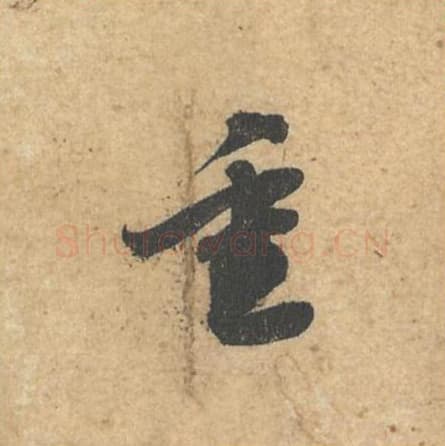 重
Shufawang.CN